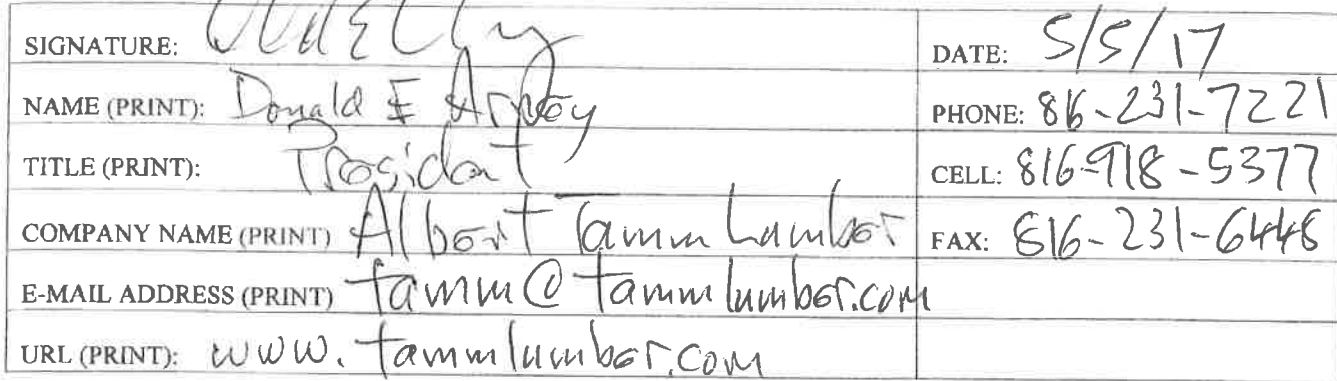 SIGNATURE: DATE: 5/5/17
NAME (PRINT): Donald E PHONE: 816-231-7221
TITLE (PRINT): President CELL: 816-918-5377
COMPANY NAME (PRINT) Albert Tamm Lumber FAX: 816-231-6448
E-MAIL ADDRESS (PRINT) tamm@tammlumber.com
URL (PRINT): www.tammlumber.com